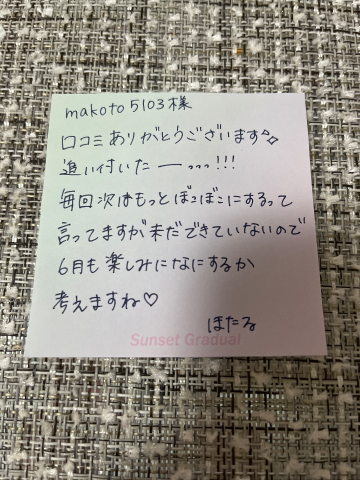 makoto5103様
口コミありがとうございます✧
追い付いたー₀₀₀!!!
毎回次はもっとぼこぼこにするって
言ってますが未だできていないので
6月も楽しみになにするか
考えますね♡
ほたる
Sunset Gradual